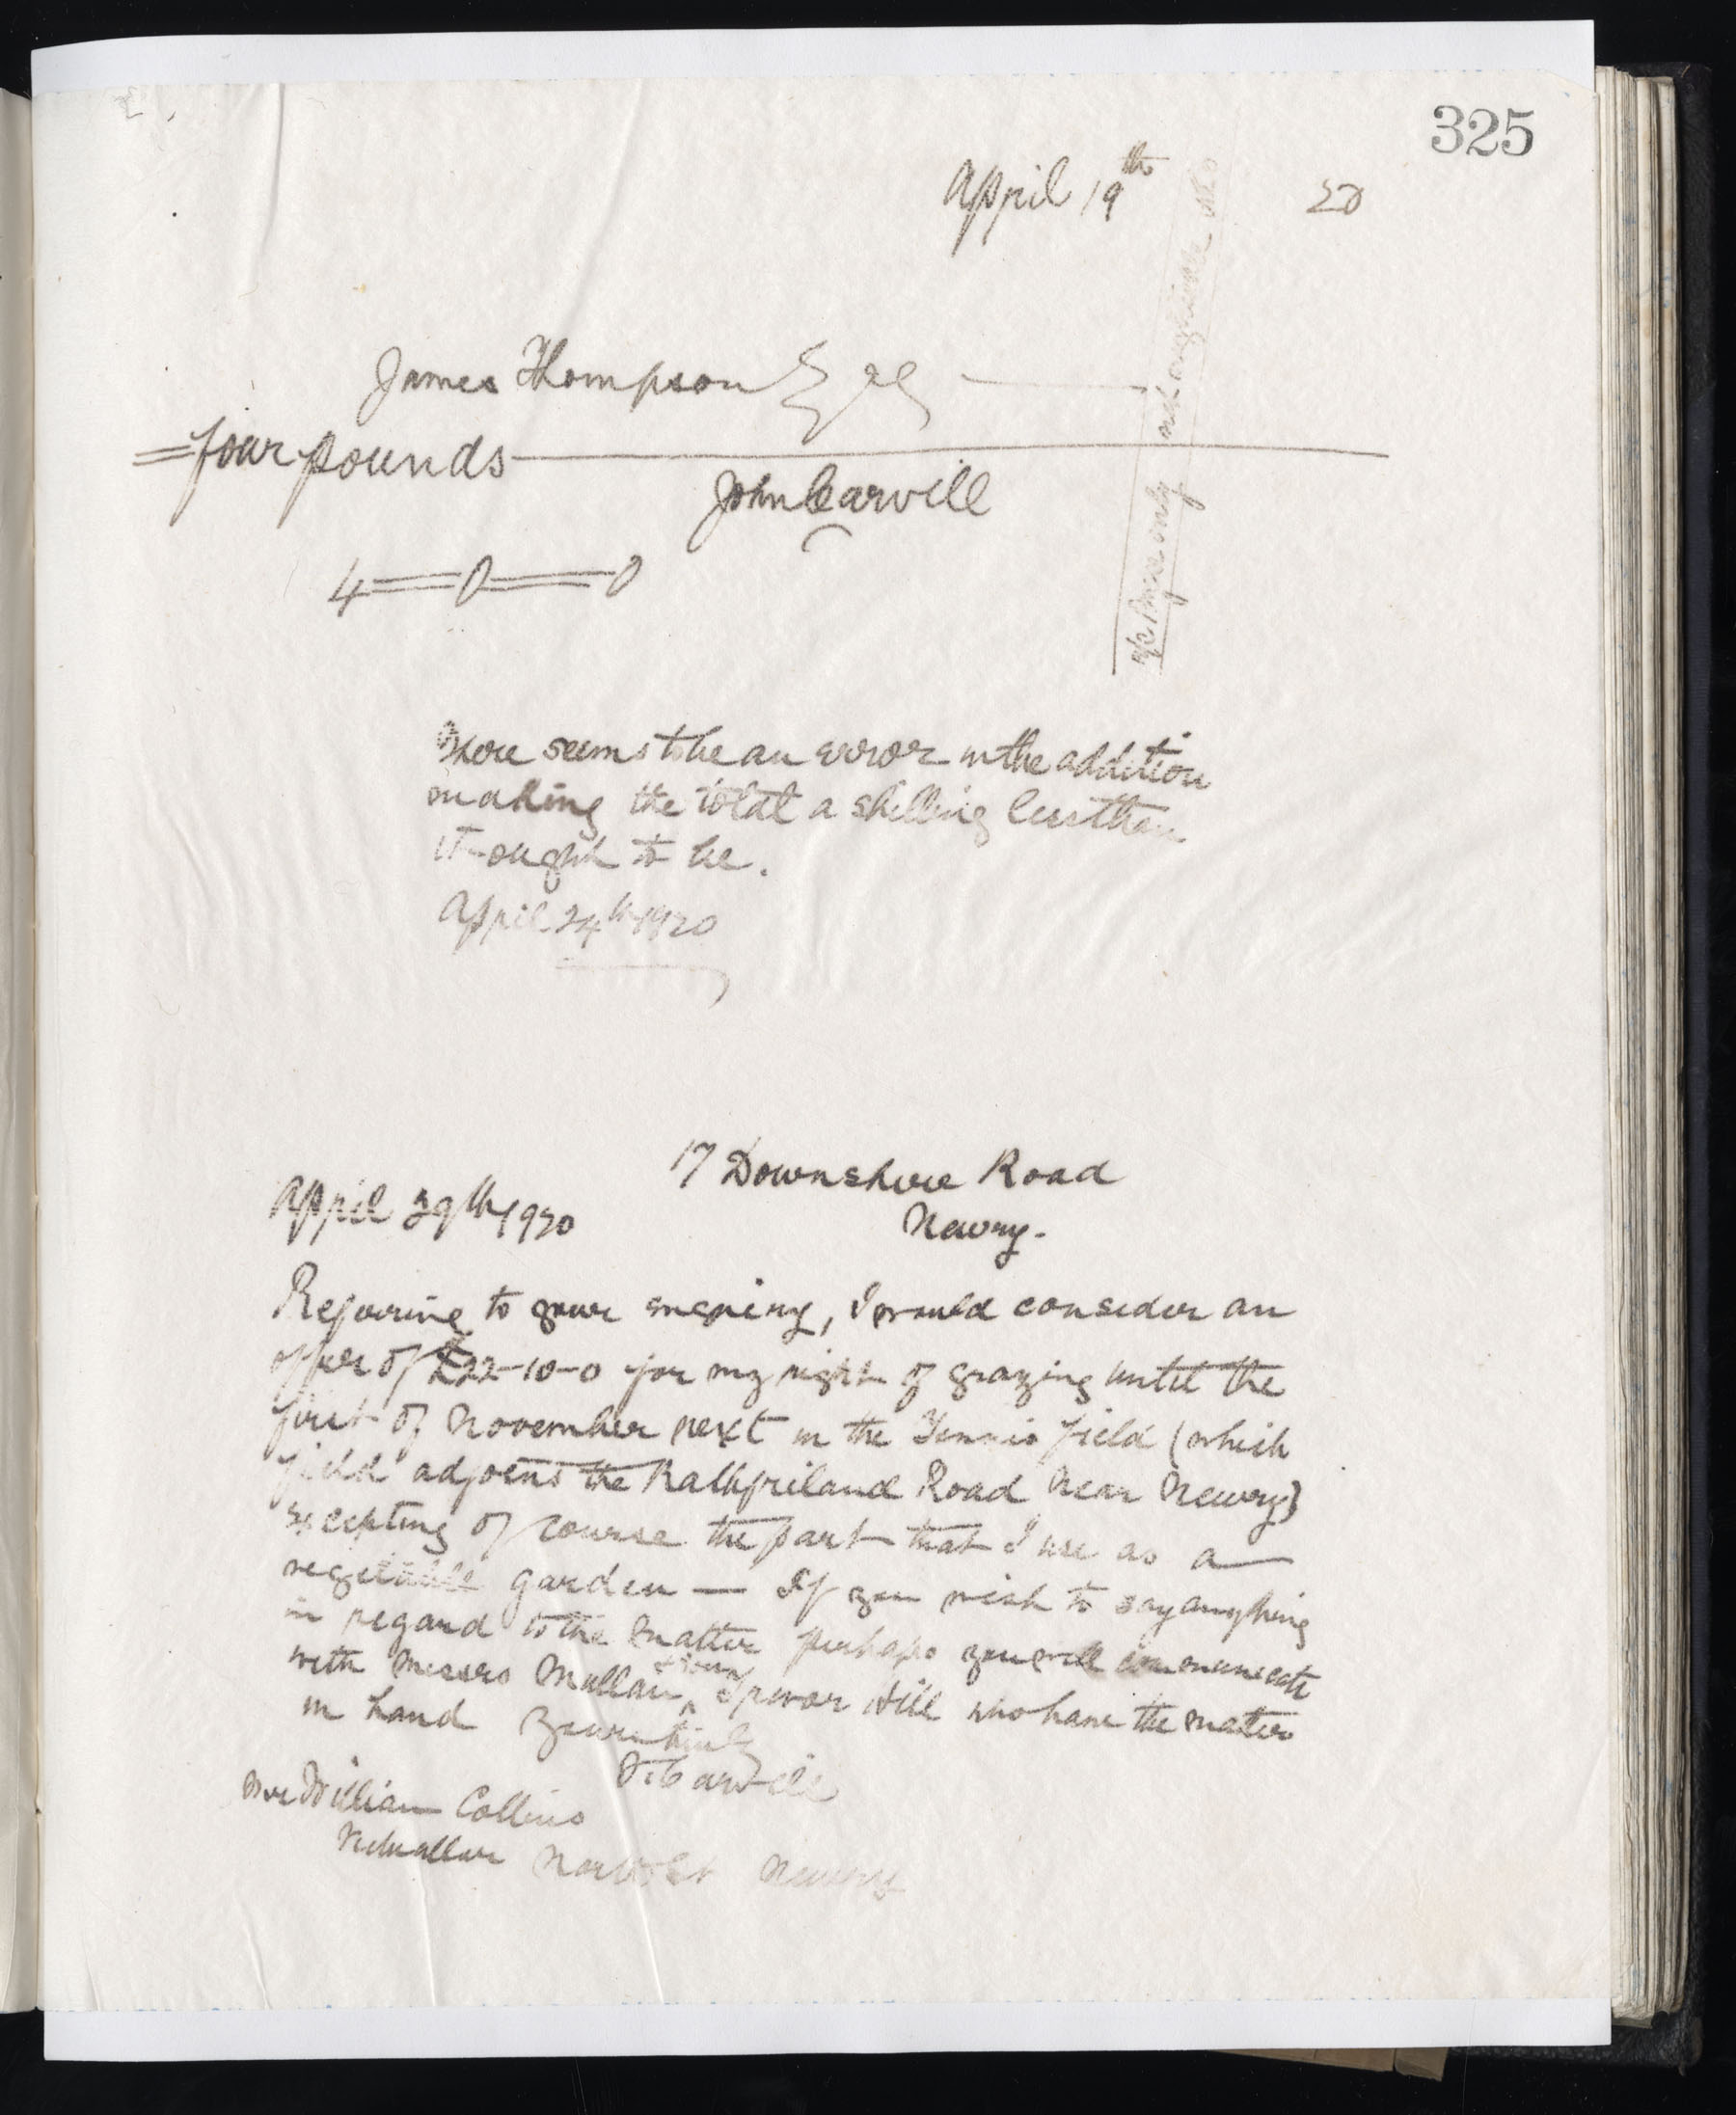 325
April 19th 20
James Thompson Esq
four pounds
John Carvill
4 = 0 = 0
a/c payee only not negotiable
There seems to be an error in the addition
making the total a shilling less than
it ought to be.
April 24th 1920
17 Downshire Road
April 29th 1920 Newry.
Referring to your enquiry, I would consider an
offer of £22-10-0 for my right of grazing until the
first of November next in the Tennis field (which
field adjoins the Rathfriland Road near Newry)
excepting of course the part that I use as a
vegetable garden — If you wish to say anything
in regard to the matter perhaps you will communicate
with Messrs Mullan & Son Trevor Hill who have the matter
in hand Yours truly
J. Carvill
Mr William Collins
Victualler North St Newry